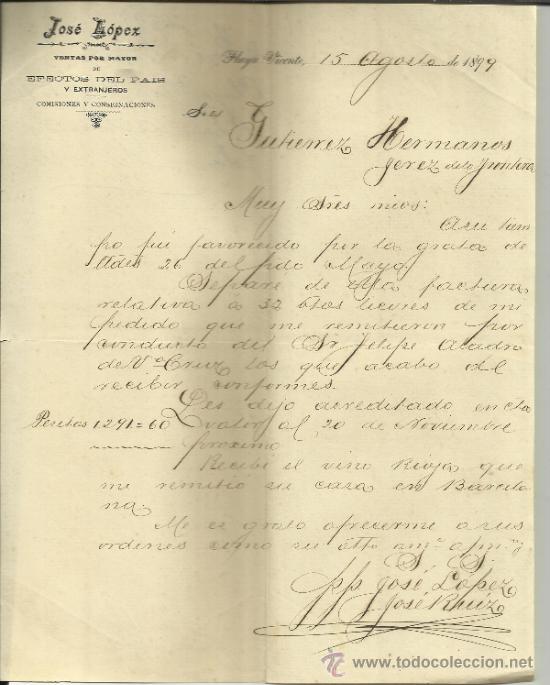 José López
VENTAS POR MAYOR
DE
EFECTOS DEL PAIS
Y EXTRANJEROS
COMISIONES Y CONSIGNACIONES
Playa Vicente, 15 Agosto de 1899
Sres
Gutierrez Hermanos
Jerez de la Frontera
Muy Sres mios:
A su tiem
po fuí favorecido por la grata de
Udes 26 del pdo Mayo.
Separe de ella factura
relativa á 32 btos licores de mi
pedido que me remitieron por
conducto del Sr Felipe
de Va Cruz los que acabo de
recibir conformes.
Les dejo acreditado en cta
Pesetas 1291=60 valor al 20 de Noviembre
proximo
Recibi el vino Rioja que
me remitio su casa en Barcelo
na.
Me es grato ofrecerme a sus
ordenes como su atto
S. S.
pp José López
José Rhuiz
www.todocoleccion.net